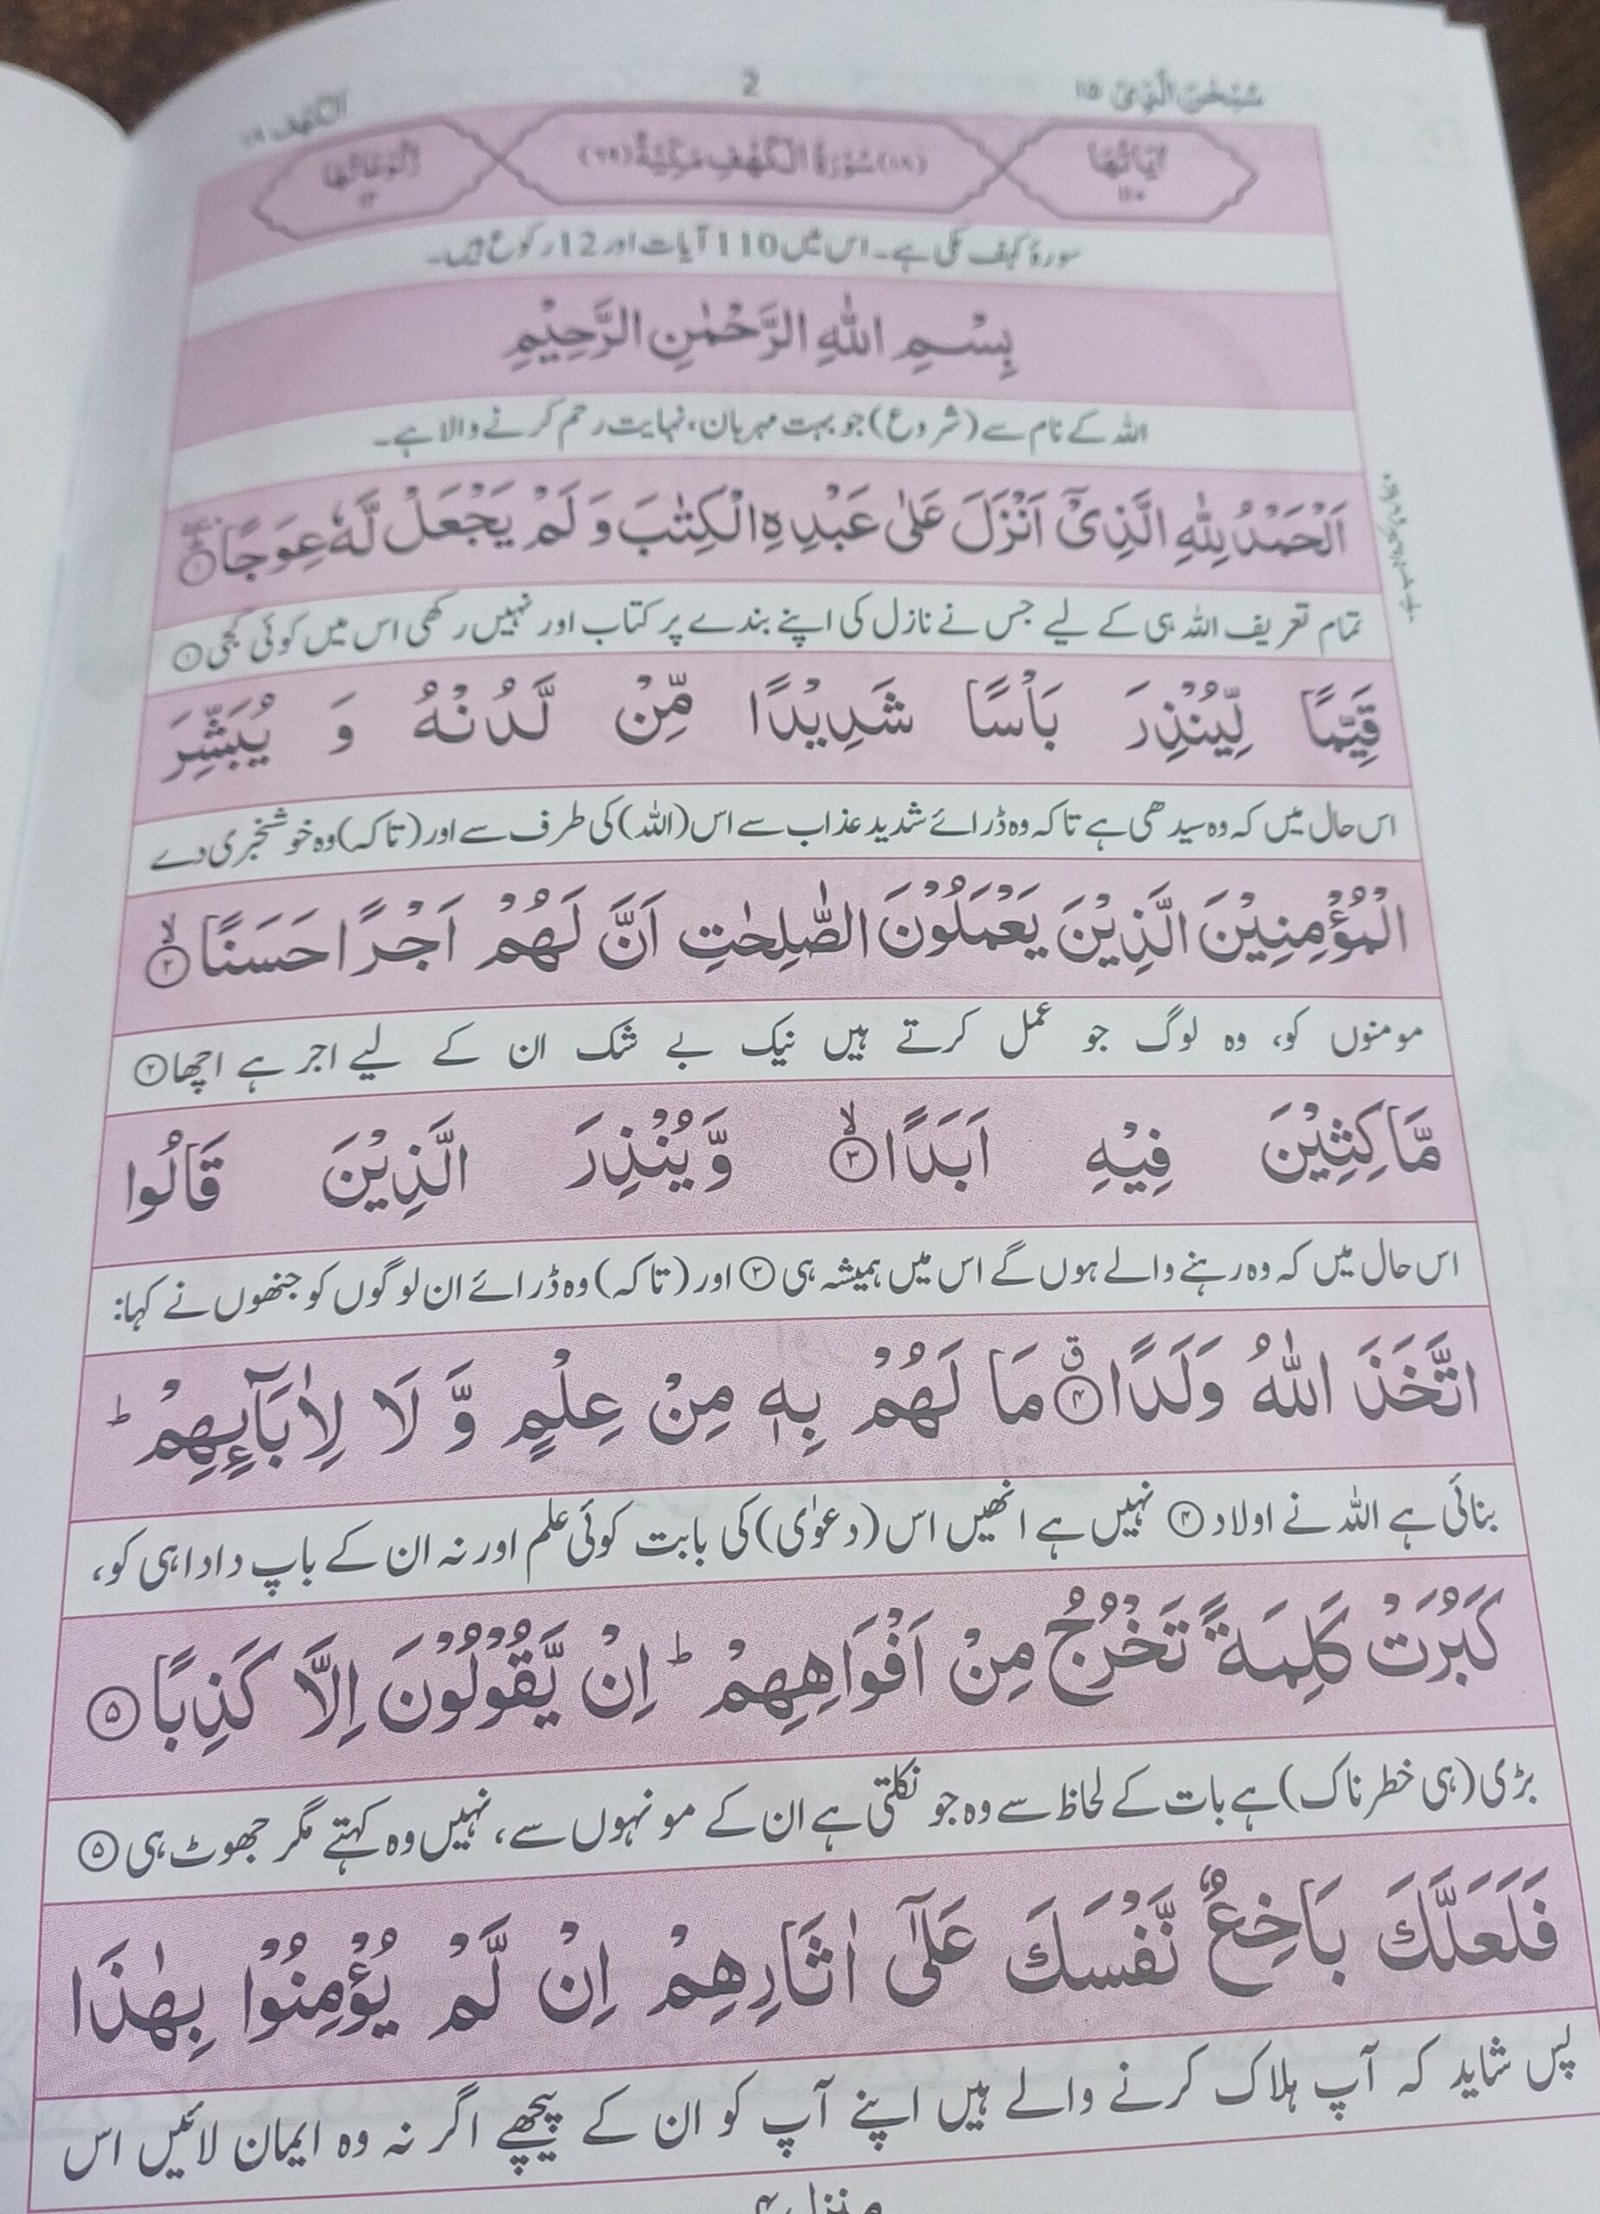 سُبْحٰنَ الَّذِیْ ١٥ 2 الْكَهْف ١٨
اٰیَاتُهَا ١١٠ (١٨) سُوْرَةُ الْكَهْفِ مَكِّیَّةٌ (٦٩) رُكُوْعَاتُهَا ١٢
سورۂ کہف مکی ہے۔ اس میں 110 آیات اور 12 رکوع ہیں۔
بِسْمِ اللّٰهِ الرَّحْمٰنِ الرَّحِیْمِ
اللہ کے نام سے (شروع) جو بہت مہربان، نہایت رحم کرنے والا ہے۔
اَلْحَمْدُ لِلّٰهِ الَّذِیْۤ اَنْزَلَ عَلٰی عَبْدِهِ الْكِتٰبَ وَ لَمْ یَجْعَلْ لَّهٗ عِوَجًا ①
تمام تعریف اللہ ہی کے لیے جس نے نازل کی اپنے بندے پر کتاب اور نہیں رکھی اس میں کوئی کجی ①
قَیِّمًا لِّیُنْذِرَ بَاْسًا شَدِیْدًا مِّنْ لَّدُنْهُ وَ یُبَشِّرَ
اس حال میں کہ وہ سیدھی ہے تاکہ وہ ڈرائے شدید عذاب سے اس (اللہ) کی طرف سے اور (تاکہ) وہ خوشخبری دے
الْمُؤْمِنِیْنَ الَّذِیْنَ یَعْمَلُوْنَ الصّٰلِحٰتِ اَنَّ لَهُمْ اَجْرًا حَسَنًا ②ۙ
مومنوں کو، وہ لوگ جو عمل کرتے ہیں نیک بے شک ان کے لیے اجر ہے اچھا ②
مَّاكِثِیْنَ فِیْهِ اَبَدًا ③ۙ وَّ یُنْذِرَ الَّذِیْنَ قَالُوا
اس حال میں کہ وہ رہنے والے ہوں گے اس میں ہمیشہ ہی ③ اور (تاکہ) وہ ڈرائے ان لوگوں کو جنھوں نے کہا:
اتَّخَذَ اللّٰهُ وَلَدًا ④ۗ مَا لَهُمْ بِهٖ مِنْ عِلْمٍ وَّ لَا لِاٰبَآىِٕهِمْ ؕ
بنائی ہے اللہ نے اولاد ④ نہیں ہے انھیں اس (دعوٰی) کی بابت کوئی علم اور نہ ان کے باپ دادا ہی کو،
كَبُرَتْ كَلِمَةً تَخْرُجُ مِنْ اَفْوَاهِهِمْ ؕ اِنْ یَّقُوْلُوْنَ اِلَّا كَذِبًا ⑤
بڑی (ہی خطرناک) ہے بات کے لحاظ سے وہ جو نکلتی ہے ان کے مونہوں سے، نہیں وہ کہتے مگر جھوٹ ہی ⑤
فَلَعَلَّكَ بَاخِعٌ نَّفْسَكَ عَلٰۤی اٰثَارِهِمْ اِنْ لَّمْ یُؤْمِنُوْا بِهٰذَا
پس شاید کہ آپ ہلاک کرنے والے ہیں اپنے آپ کو ان کے پیچھے اگر نہ وہ ایمان لائیں اس
منزل ٤